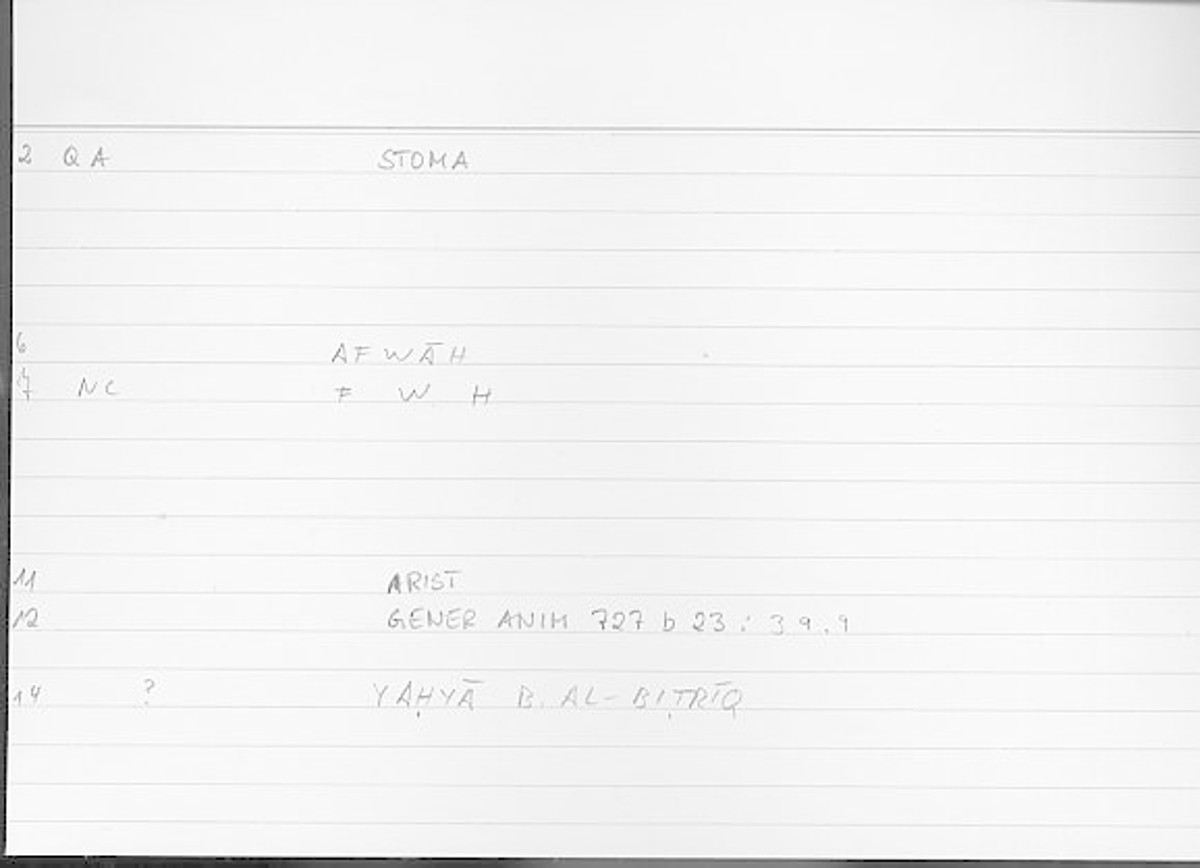 2 QA STOMA
6 AFWĀH
7 NC F W H
11 ARIST
12 GENER ANIM 727 b 23 : 39.9
14 ? YAḤYĀ B. AL-BIṬRĪQ